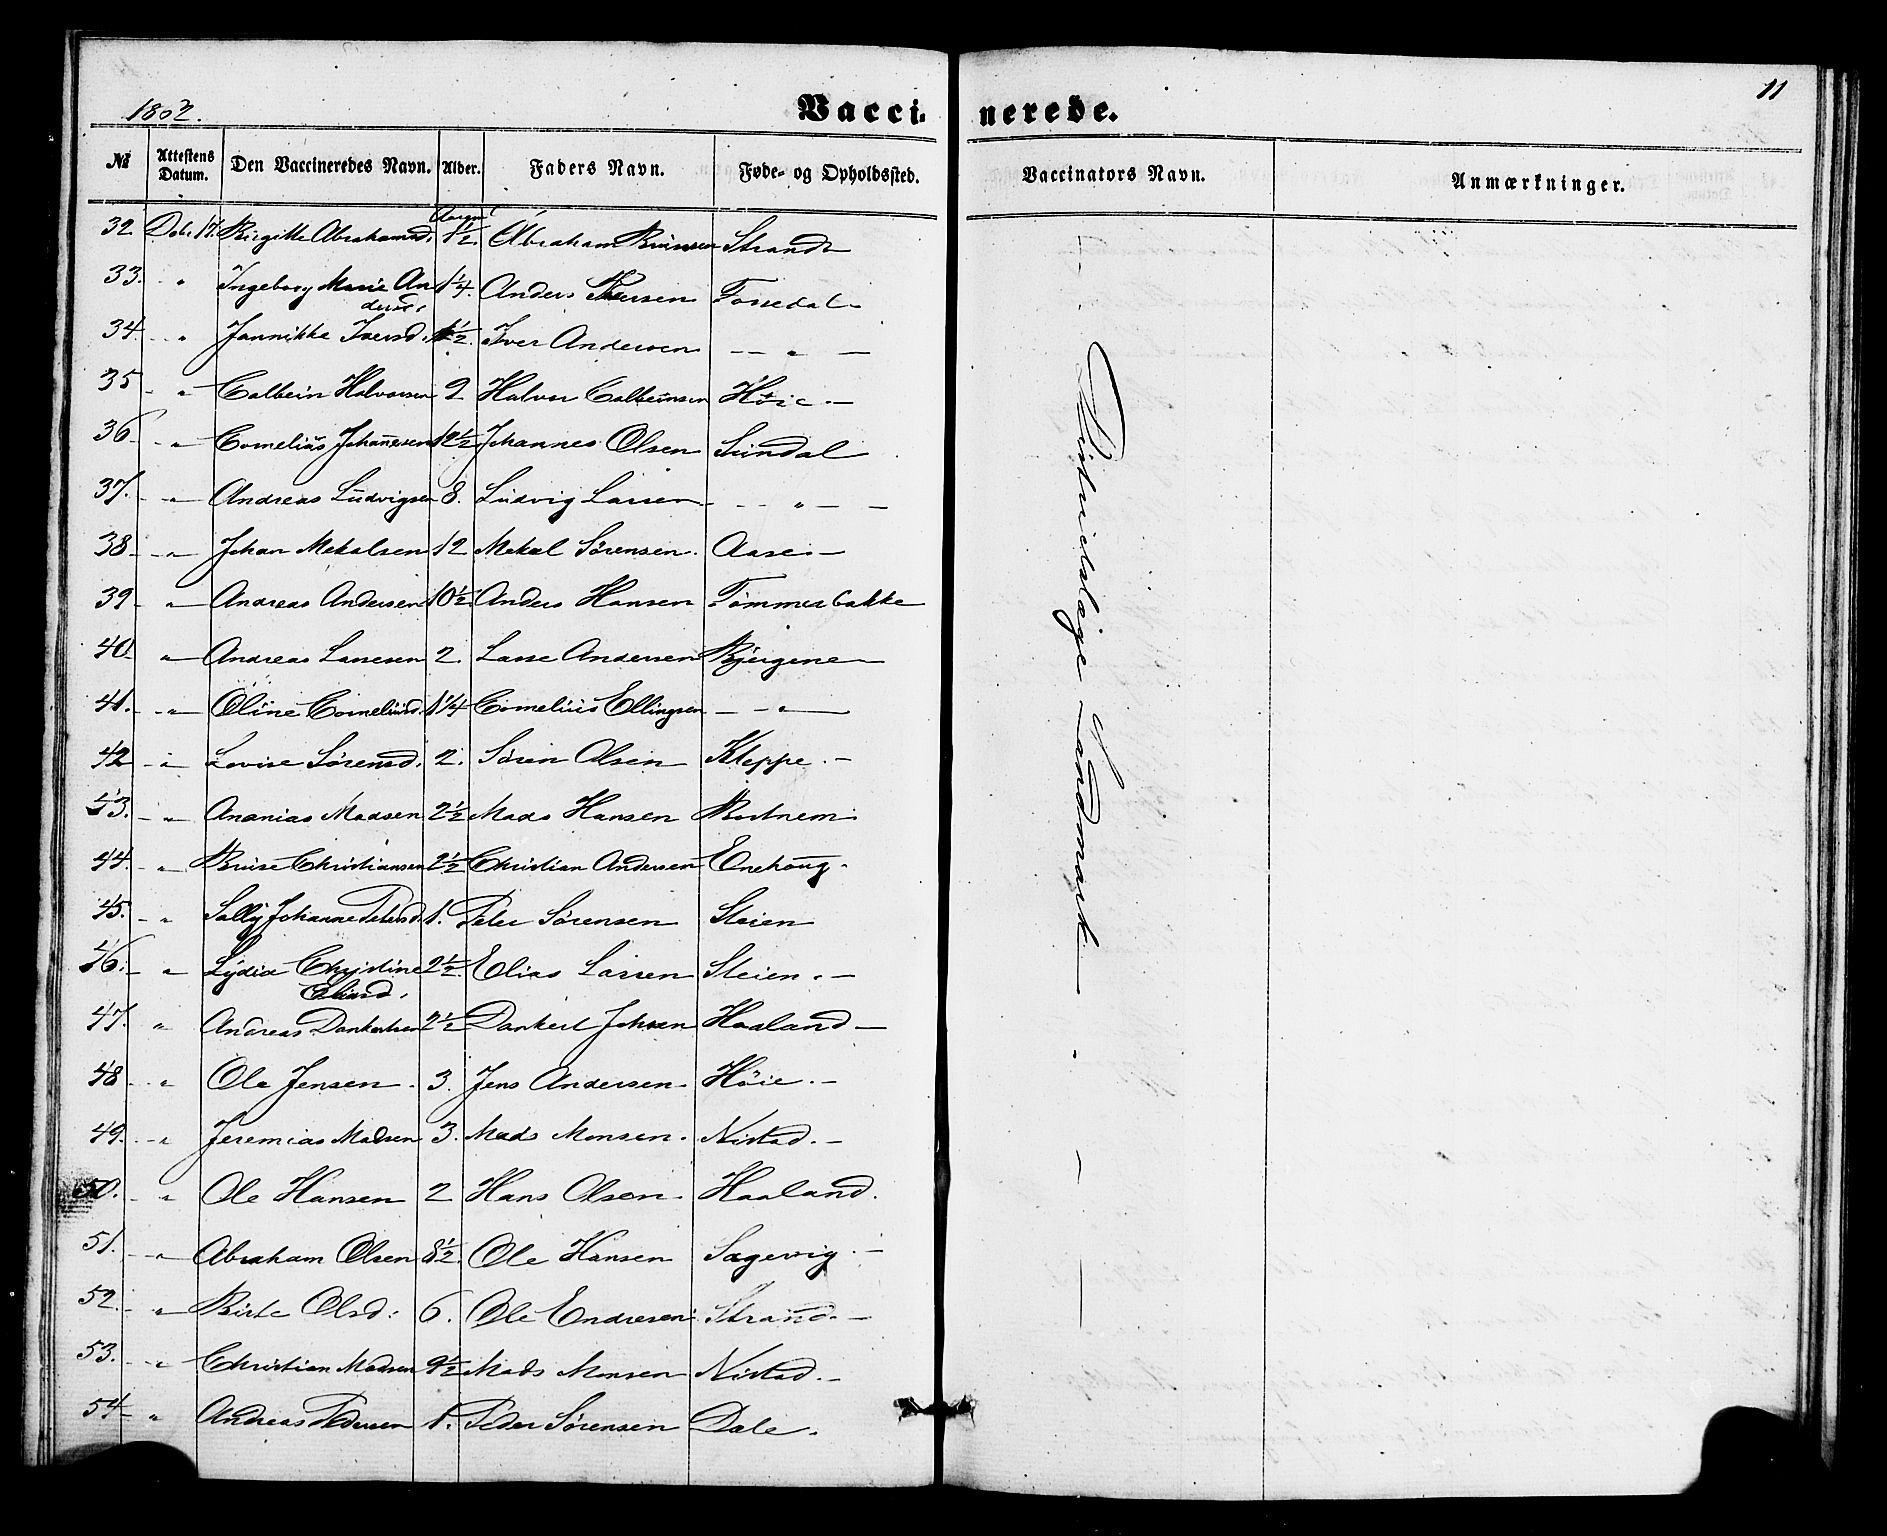 11
Vaccinerede.
№ Attestens Datum. Den Vaccineredes Navn. Alder. Faders Navn. Føde- og Opholdssted. Vaccinators Navn. Anmærkninger.
32. 17. Birgitte Abrahamsd. 1½. Abraham Strand
33. " Ingeborg Marie An 1¼. Anders Fossedal
dersd.
34. " Jannikke Iversd. ½. Iver Andersen — " —
35 - " Colbein Halvorsen 2 Halvor Colbeinsen Høie. —
36. - " Cornelius Johannesen 12½ Johannes Olsen Sundal
37. - " Andreas Ludvigsen 8. Ludvig Larsen - - " - -
38 - - " Johan Mekalsen 12 Mekal Sørensen. Aase. —
39 - " Andreas Andersen 10½ Anders Hansen Tømmerbakke
40 " Andreas Larsen 2 Lasse Andersen Bjergene
41. - " Oline Corneliusd. 1¼ Cornelius Ellingsen - - "
42 - " Lovise Sørensd. 2. Søren Olsen Kleppe. —
43. - " Ananias Madsen 2½ Mads Hansen Bortnem
44. - " Christiansen 2½ Christian Andersen Enehoug.
45. - " Sally Johanne Petersd. 1. Peter Sørensen Steien
46. - " Lydia Christine 2½. Elias Larsen Steien. —
Eliasd.
47. " Andreas Dankertsen 2½ Dankert Johnsen Haaland —
48 - " Ole Jensen. 3. Jens Andersen. Høie. —
49. - " Jeremias Madsen 3. Mads Monsen. Nistad. —
50. " Ole Hansen 2 Hans Olsen. Haaland.
51. - " Abraham Olsen 8½. Ole Hansen Sagevig. —
52. - " Birte Olsd. 6. Ole Endresen Strand. —
53. - " Christian Madsen 9½ Mads Monsen Nistad. —
54 - " Andreas Pedersen 1. Peder Sørensen Dale.
Districtslæge Landmark